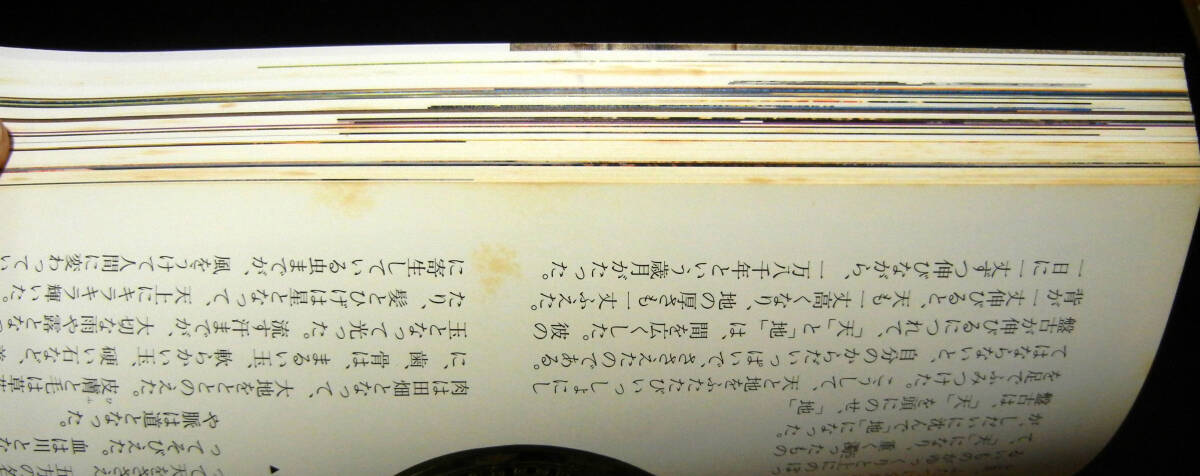 て、「天」になり、重く濁ったもの
が、しだいに沈んで「地」になった。
盤古は、「天」を頭にのせ、「地」
を足でふみつけた。こうして、天と地をふたたびいっしょにし
てはならないと、自分のからだいっぱいでささえたのである。
盤古が伸びるにつれて、「天」と「地」は、間を広くした。彼の
背が一丈伸びると、天も一丈高くなり、地の厚さも一丈ふえた。
一日に一丈ずつ伸びながら、一万八千年という歳月がたった。
って天をささえ
ってそびえた。血は川とな
や脈は道となった。
肉は田畑となって、大地をととのえた。皮膚と毛は草
に、歯、骨は、まるい玉、軟らかい玉、硬い石など、
玉となって光った。流す汗までが、大切な雨や露となっ
たり、髪とひげは星となって、天上にキラキラ輝いた。
に寄生している虫までが、風をうけて人間に変わってい